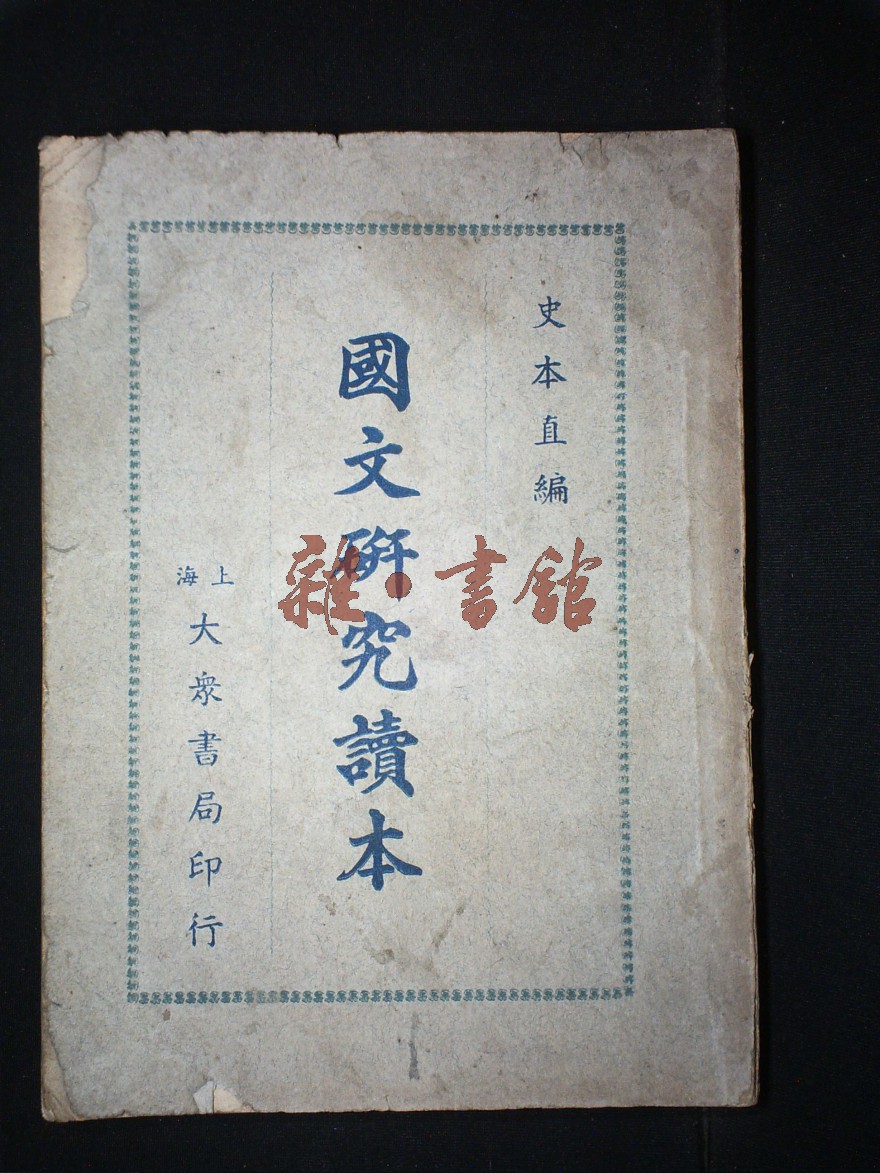 史本直編
國文研究讀本
上海
大眾書局印行
雜·書館